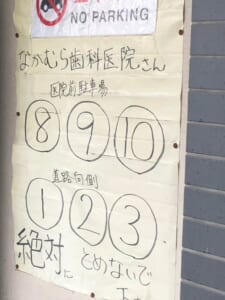 NO PARKING
なかむら歯科医院さん
医院前駐車場
8 9 10
道路向側
1 2 3
絶対に とめないで